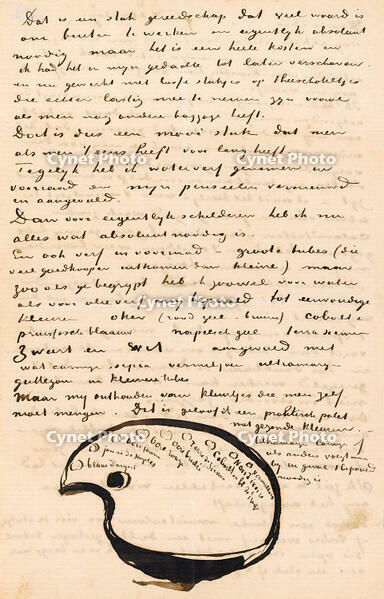 Dat is een stuk gereedschap dat veel waard is
om buiten te werken en eigentlyk absoluut
noodig maar het is een heele kosten en
ik had het in myn gedachte tot later verschoven
en nu gewerkt met losse stukjes op theeschoteltjes
die echter lastig mee te nemen zyn vooral
als men nog andere bagage heeft.
Dat is dus een mooi stuk dat men
als men 't eens heeft voor lang heeft
Cynet Photo Cynet Photo
Tegelyk heb ik waterverf genomen in
voorraad en myn penseelen vernieuwd
en aangevuld.
Dan voor eigentlyk schilderen heb ik nu
alles wat absoluut noodig is.
En ook verf in voorraad – groote tubes (die
veel goedkooper uitkomen dan kleine) maar
zoo als ge begrypt heb ik zoowel voor water
als voor olieverf my bepaald tot eenvoudige
Cynet Photo
kleuren oker (rood geel bruin) cobalt en
pruissisch blaauw napelsch geel terra sienna
zwart en wit aangevuld met
wat carmyn sepia vermiljoen ultramaryn
guttegom in kleinere tubes
Maar my onthouden van kleurtjes die men zelf
moet mengen. Dit is geloof ik een praktisch palet
met gezonde kleuren.
Cynet Photo Cynet Photo
als anders voegt men
by in geval bepaald
noodig is